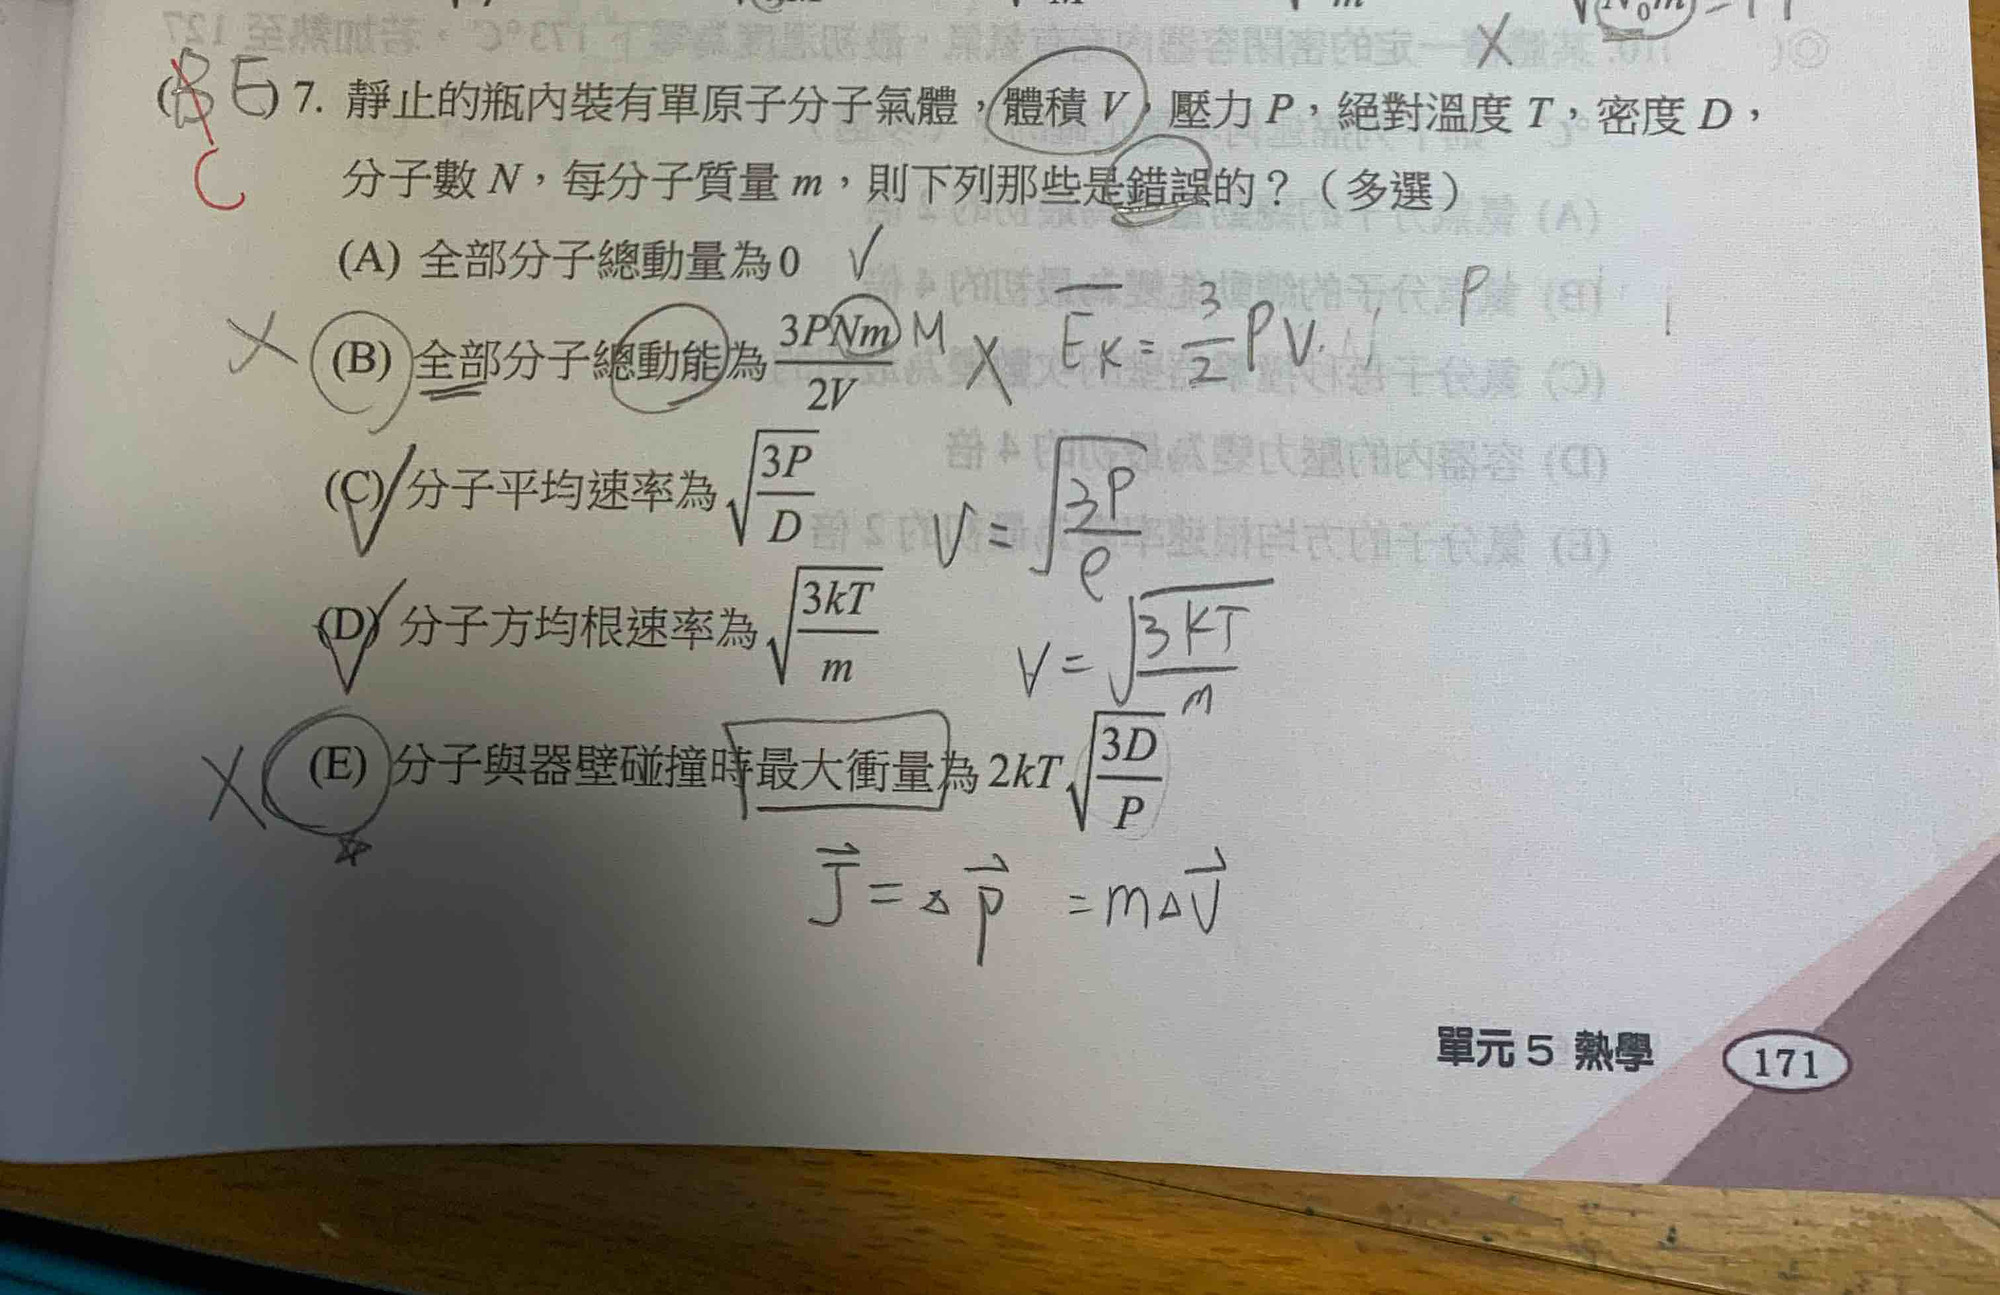 (BE) 7. 靜止的瓶內裝有單原子分子氣體，體積 V，壓力 P，絕對溫度 T，密度 D，
C
分子數 N，每分子質量 m，則下列那些是錯誤的？（多選）
(A) 全部分子總動量為 0 ✓
(B) 全部分子總動能為 3PNm/2V M X Eₖ = 3/2 PV P
(C) 分子平均速率為 √(3P/D) V = √(3P/ρ)
(D) 分子方均根速率為 √(3kT/m) V = √(3KT/m)
(E) 分子與器壁碰撞時最大衝量為 2kT √(3D/P)
J⃗ = △p⃗ = m△V⃗
單元 5 熱學 171